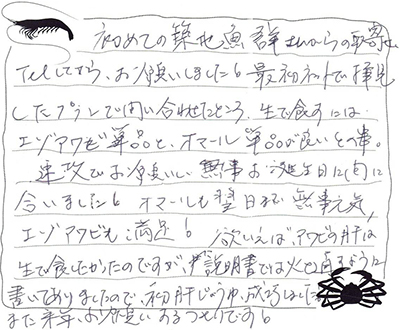 初めての築地魚群さんからの取寄せ
Telしてから、お願いしました！最初ネットで拝見
したプランで問い合わせたところ、生で食すには
エゾアワビ単品と、オマール単品が良いとの事。
速攻でお願いし、無事お誕生日に(旬)に
合いました！オマールも翌日まで無事元気、
エゾアワビも満足！欲いえば、アワビの肝は
生で食したかったのですが、説明書では火を通すように
書いてありましたので、初肝じょうゆ、成功しました
また来年、お願いするつもりです！